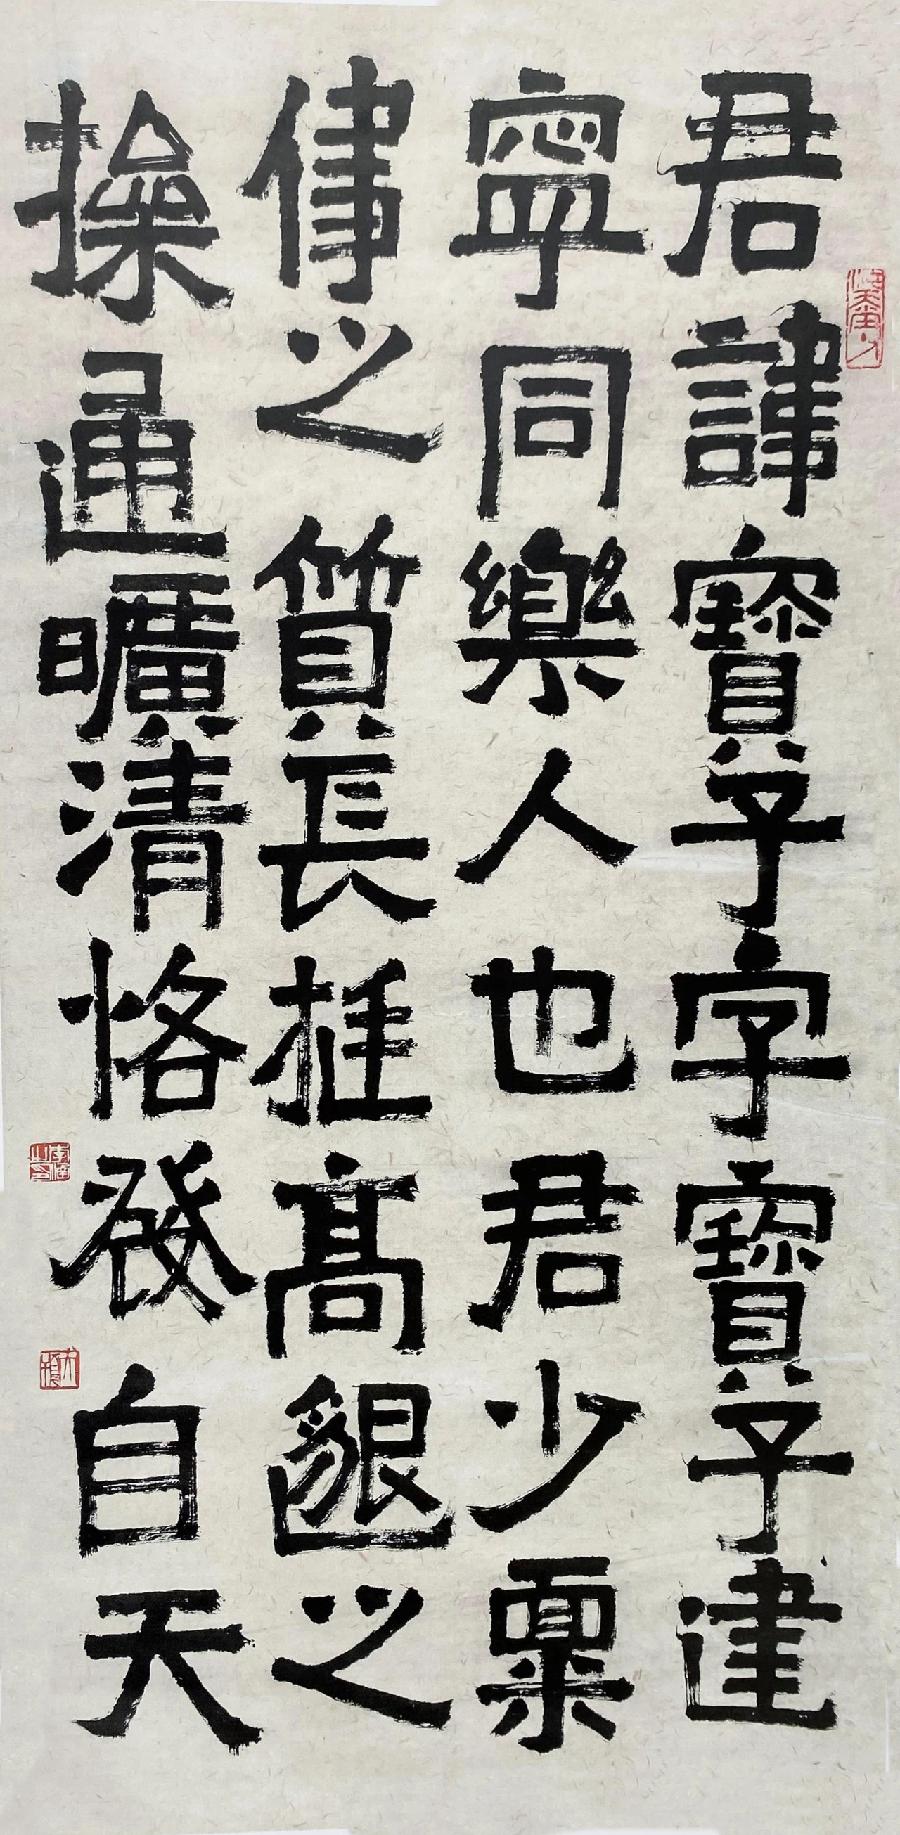 君諱寶子字寶子建
寧同樂人也君少稟
俥之質長挺高邈之
操通曠清恪發自天